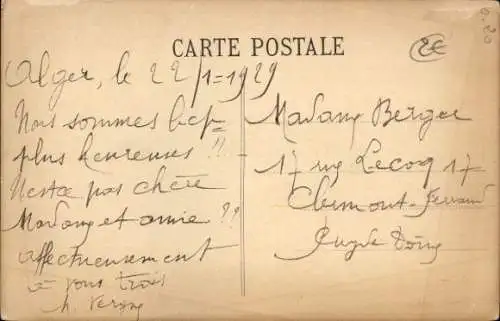 CARTE POSTALE
2€
0.20
Alger, le 22/1=1929
Nous sommes bcp
plus heureuses !!
Nestce pas chère
Madame et amie ??
affectueusement
à vous trois
Madame Berger
17 rue Lecoq 17
Clermont-Ferrand
Puy de Dôme